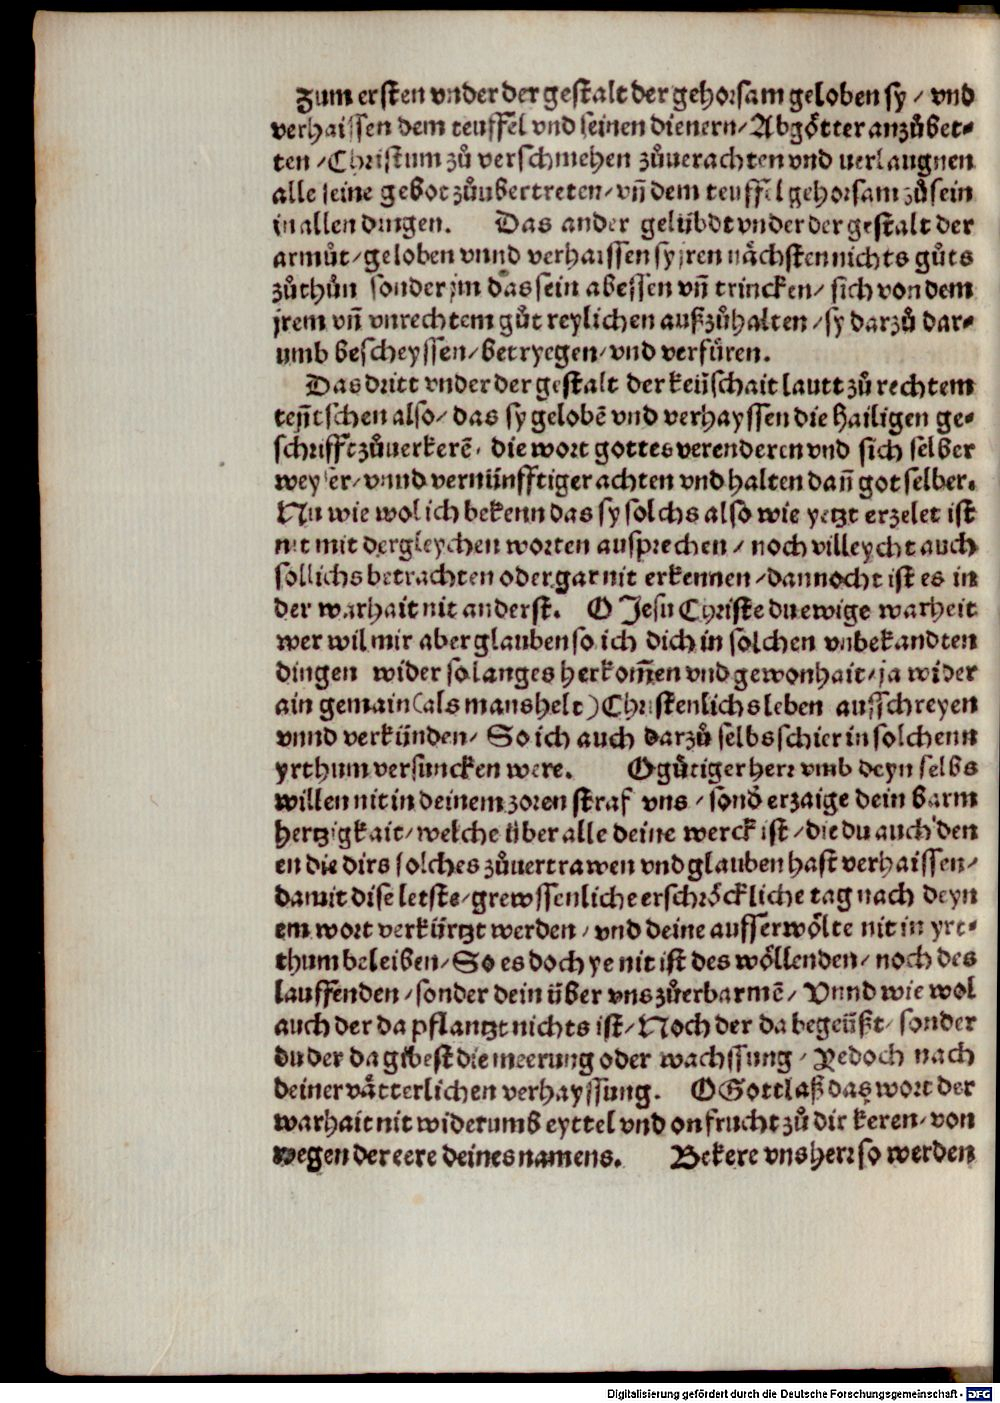 Zum ersten vnder der gestalt der gehorsam geloben sy / vnd
verhaissen dem teuffel vnd seinen dienern / Abgoͤtter anzuͦbet⸗
ten / Christum zuͦ verschmehen zuͦuerachten vnd uerlaugnen
alle seine gebot zuͦubertreten / vn̄ dem teuffel gehorsam zuͦ sein
in allen dingen. Das ander gelübdt vnder der gestalt der
armuͦt / geloben vnnd verhaissen sy jren naͤchsten nichts guͦts
zuͦthuͦn sonder jm das sein abessen vn̄ trincken / sich von dem
jrem vn̄ vnrechtem guͦt reylichen außzuͦhalten / sy darzuͦ dar⸗
umb bescheyssen / betryegen / vnd verfuͤren.
Das dritt vnder der gestalt der keüschait lautt zuͦ rechtem
teṻtschen also / das sy gelobē vnd verhayssen die hailigen ge⸗
schrifft zuͦuerkerē / die wort gottes verenderen vnd sich selber
weyser / vnnd vernünfftiger achten vnd halten dan̄ got selber.
Nu wie wol ich bekenn das sy solchs also wie yetzt erzelet ist
nit mit dergleychen worten ausprechen / noch villeycht auch
sollichs betrachten oder gar nit erkennen / dannocht ist es in
der warhait nit anderst. O Jesu Christe du ewige warheit
wer wil mir aber glauben so ich dich in solchen vnbekandten
dingen wider so langes herkom̄en vnd gewonhait / ja wider
ain gemain (als mans helt) Christenlichs leben ausschreyen
vnnd verkünden / So ich auch darzuͦ selbs schier in solchenn
yrthum versuncken were. O guͤtiger herr vmb deyn selbs
willen nit in deinem zoren straf vns / sond̄ erzaige dein barm
hertzigkait / welche über alle deine werck ist / die du auch den
en die dirs solches zuͦuertrawen vnd glauben hast verhaissen /
damit dise letste / grewssenliche erschroͤckliche tag nach deyn
em wort verkürtzt werden / vnd deine ausserwoͤlte nit in yrr⸗
thum beleiben / So es doch ye nit ist des woͤllenden / noch des
lauffenden / sonder dein über vns zuͦerbarmē / Vnnd wie wol
auch der da pflantzt nichts ist / Noch der da begeüßt / sonder
du der da gibest die meerung oder wachssung / Yedoch nach
deiner vaͤtterlichen verhayssung. O Gott laß das wort der
warhait nit widerumb eyttel vnd on frucht zuͦ dir keren / von
wegen der eere deines namens. Bekere vns herr so werden
Digitalisierung gefördert durch die Deutsche Forschungsgemeinschaft - DFG